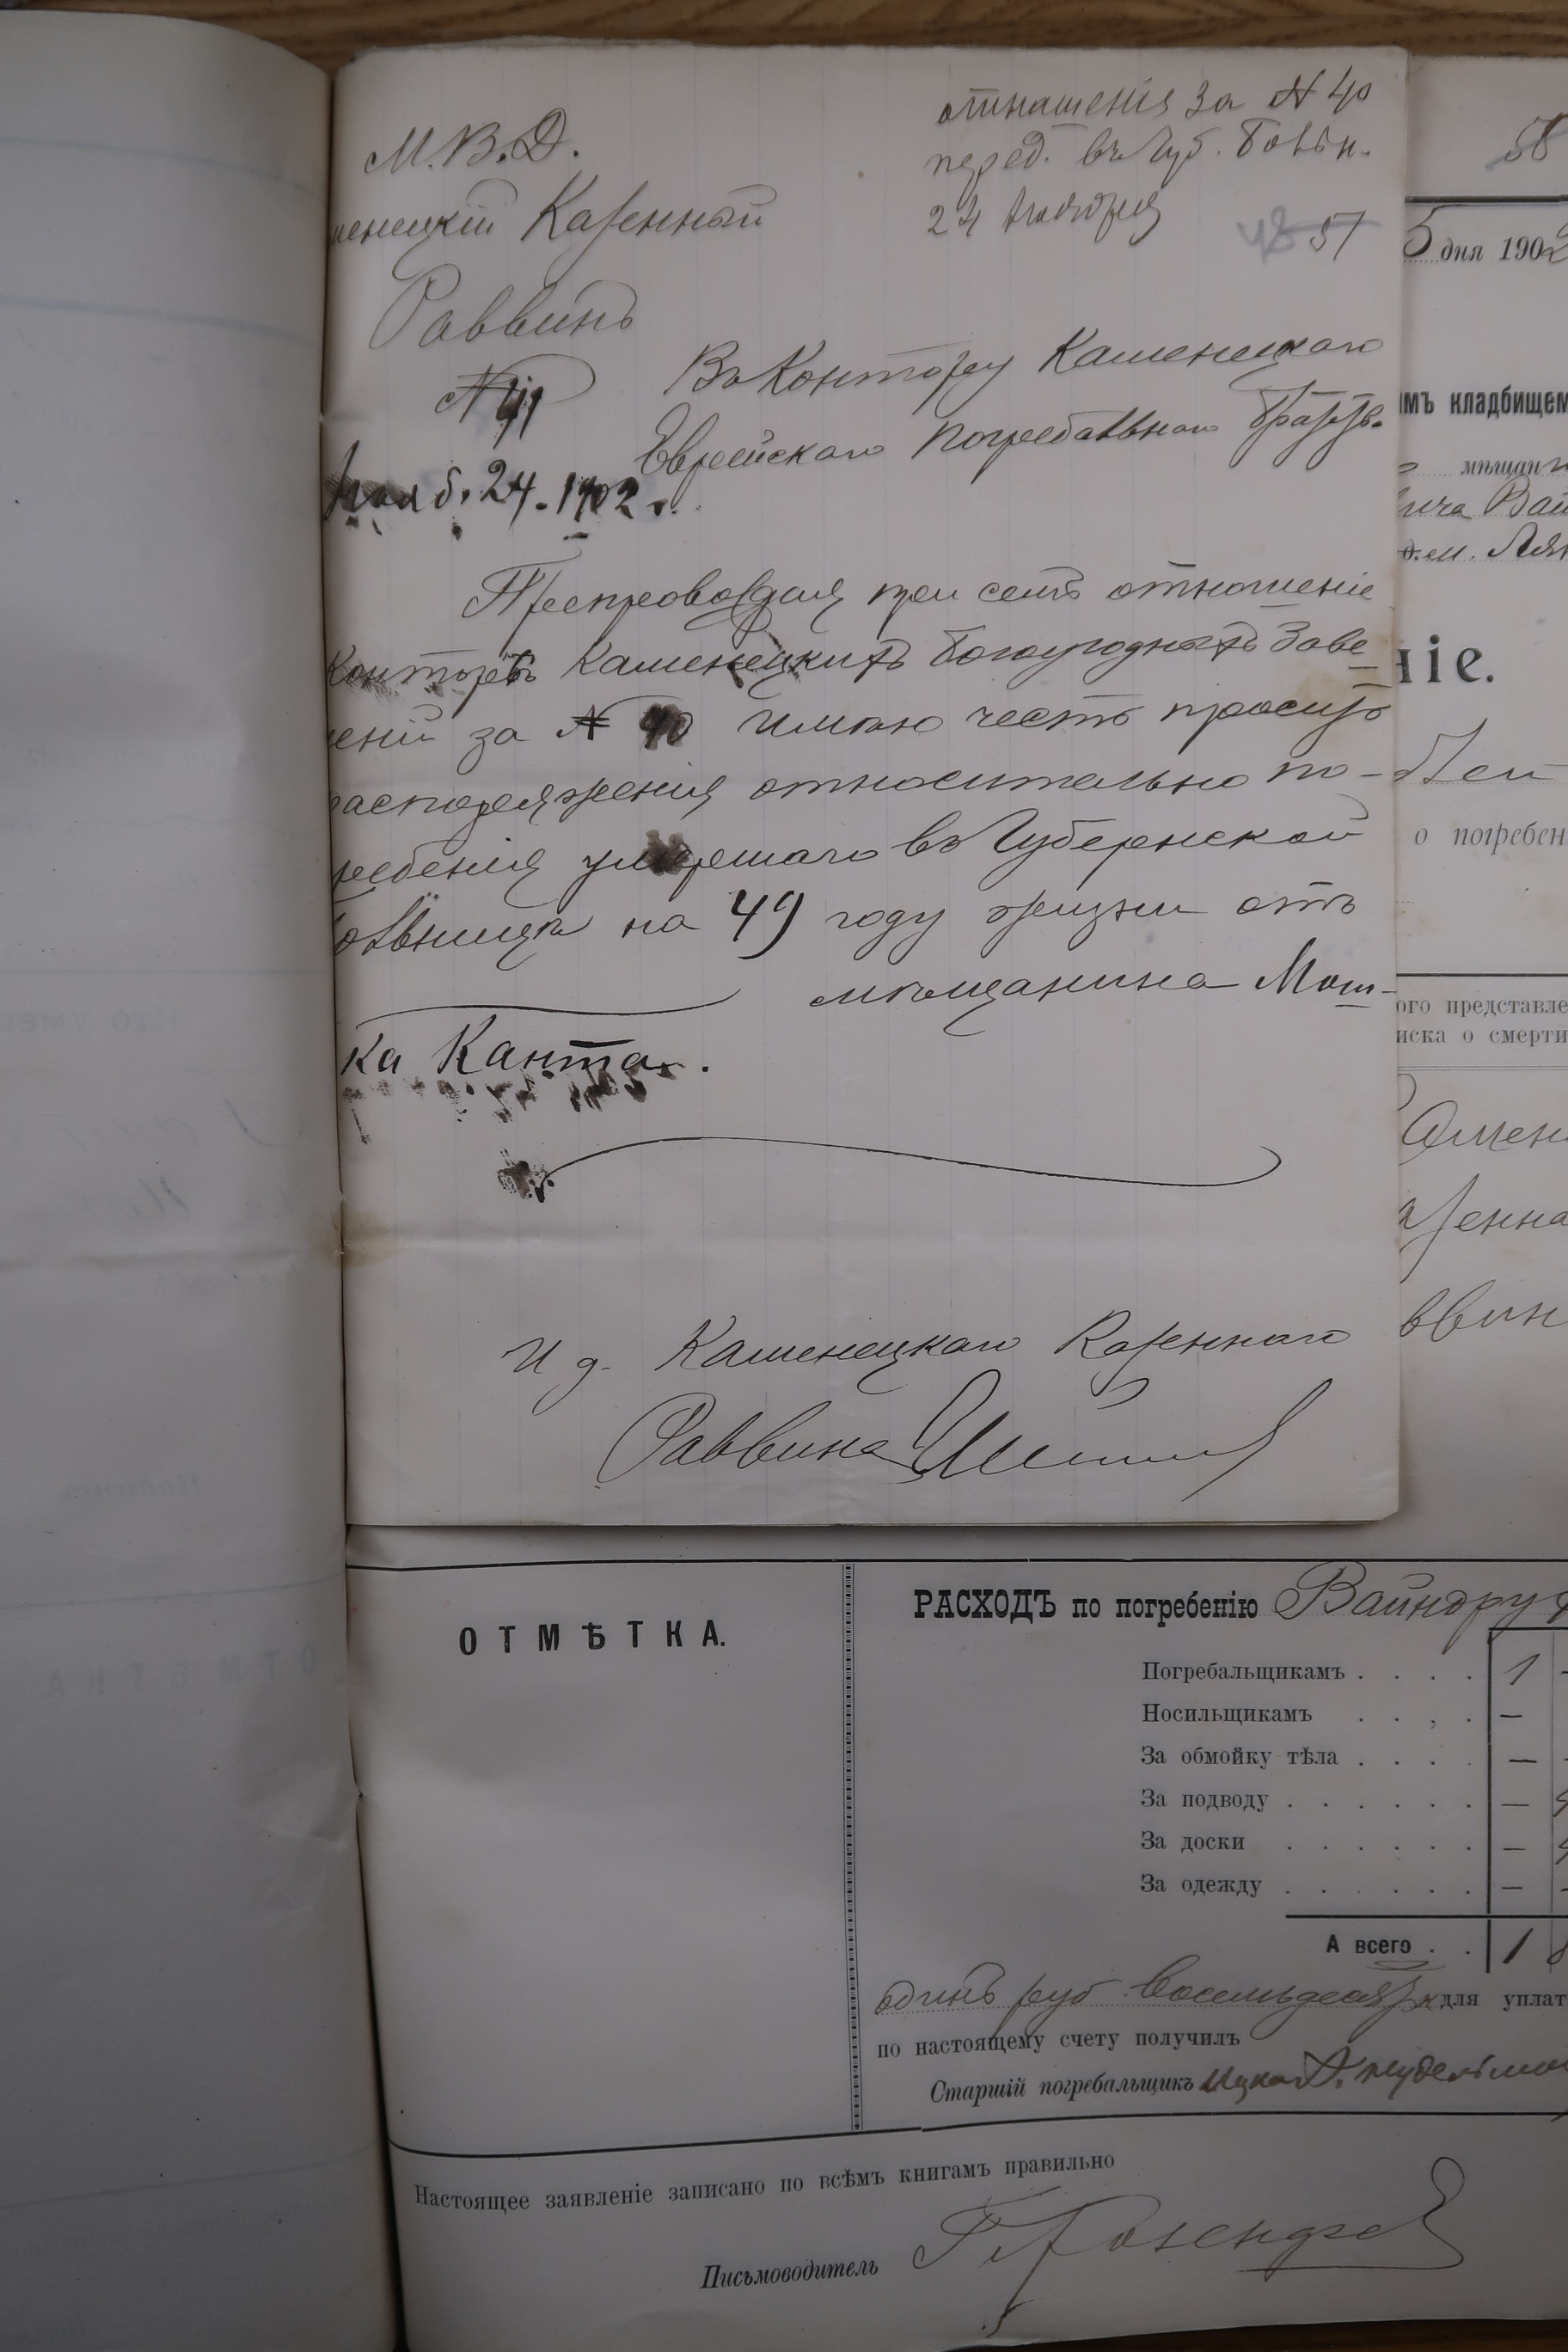 М.В.Д.
менецкій Казенный
Раввинъ
№ 41
Нояб. 24. 1902 г.
отношенія за № 40
перед. въ Губ. Больн.
24 Ноября
57
Въ Контору Каменецкаго
Еврейскаго Погребальнаго Братств.
Препровождая при семъ отношеніе
Конторы Каменецкихъ Богоугодныхъ Заве
еній за № 40 имѣю честь просить
распоряженія относительно по-
гребенія умершаго въ Губернской
больницѣ на 49 году жизни отъ
мѣщанина Мош-
ка Канта.
И д. Каменецкаго Казеннаго
Раввина
58
5 дня 1902
имъ кладбищем
мѣщан
ича Вай
ніе.
о погребен
ого представле
иска о смерти
Камен
азенна
ввин
ОТМѢТКА.
РАСХОДЪ по погребенію Вайндру
Погребальщикамъ . . . . 1
Носильщикамъ . . , . —
За обмойку тѣла . . . . —
За подводу . . . . . . —
За доски . . . . . . —
За одежду . . . . . . —
А всего . . 1
одинъ руб восемьдесятъ к для уплат
по настоящему счету получилъ
Старшій погребальщикъ
Настоящее заявленіе записано по всѣмъ книгамъ правильно
Письмоводитель